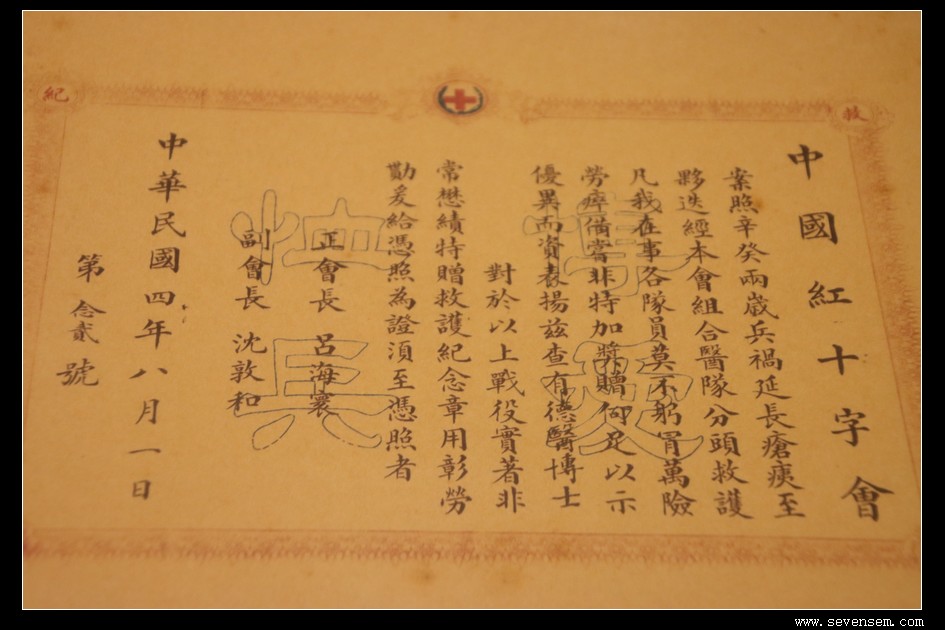 救
紀
中國紅十字會
案照辛癸兩歲兵禍延長瘡痍至
夥迭經本會組合醫隊分頭救護
凡我在事各隊員莫不躬冒萬險
勞瘁備嘗非特加獎贈何足以示
優異而資表揚茲查有德醫博士
對於以上戰役實著非
常懋績特贈救護紀念章用彰勞
勩爰給憑照為證須至憑照者
正會長 呂海寰
副會長 沈敦和
中華民國四年八月一日
第念貳號
博愛
恤兵
www.sevensem.com